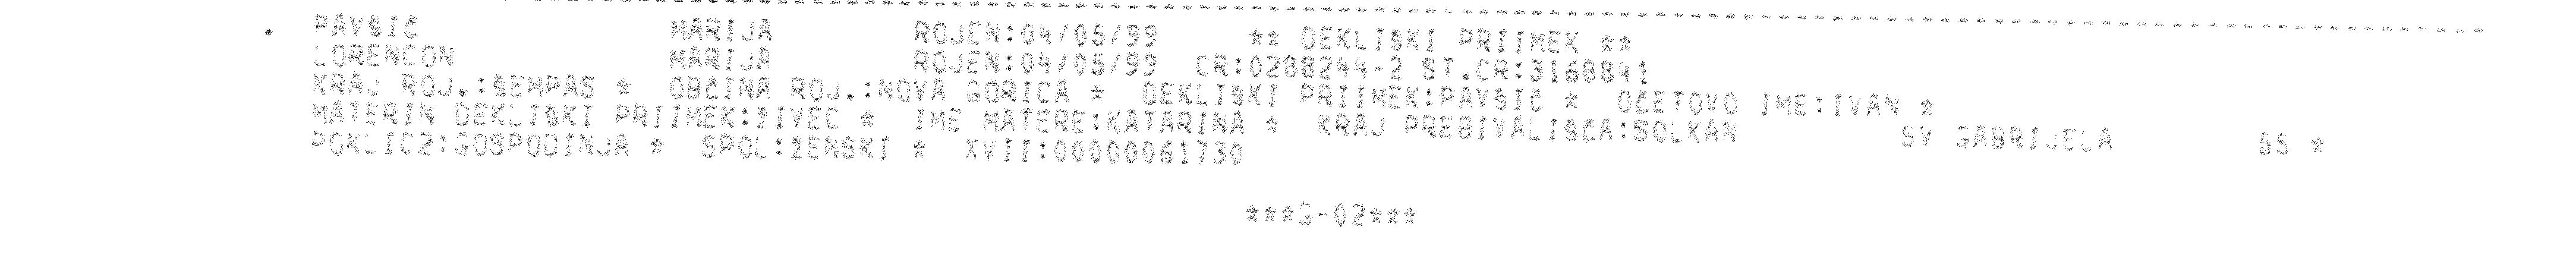 PAVSIC MARIJA ROJEN:04/05/99 ** DEKLISKI PRIIMEK **
LORENCON MARIJA ROJEN:04/05/99 CR:0288244-2 ST.CR:3168841
KRAJ ROJ.:SEMPAS * OBCINA ROJ.:NOVA GORICA * DEKLISKI PRIIMEK:PAVSIC * OCETOVO IME:IVAN *
MATERIN DEKLISKI PRIIMEK:ZIVEC * IME MATERE:KATARINA * KRAJ PREBIVALISCA:SOLKAN SV GABRIJELA 55 *
POKLIC2:GOSPODINJA * SPOL:ZENSKI * XVII:0000061730
***G-02***